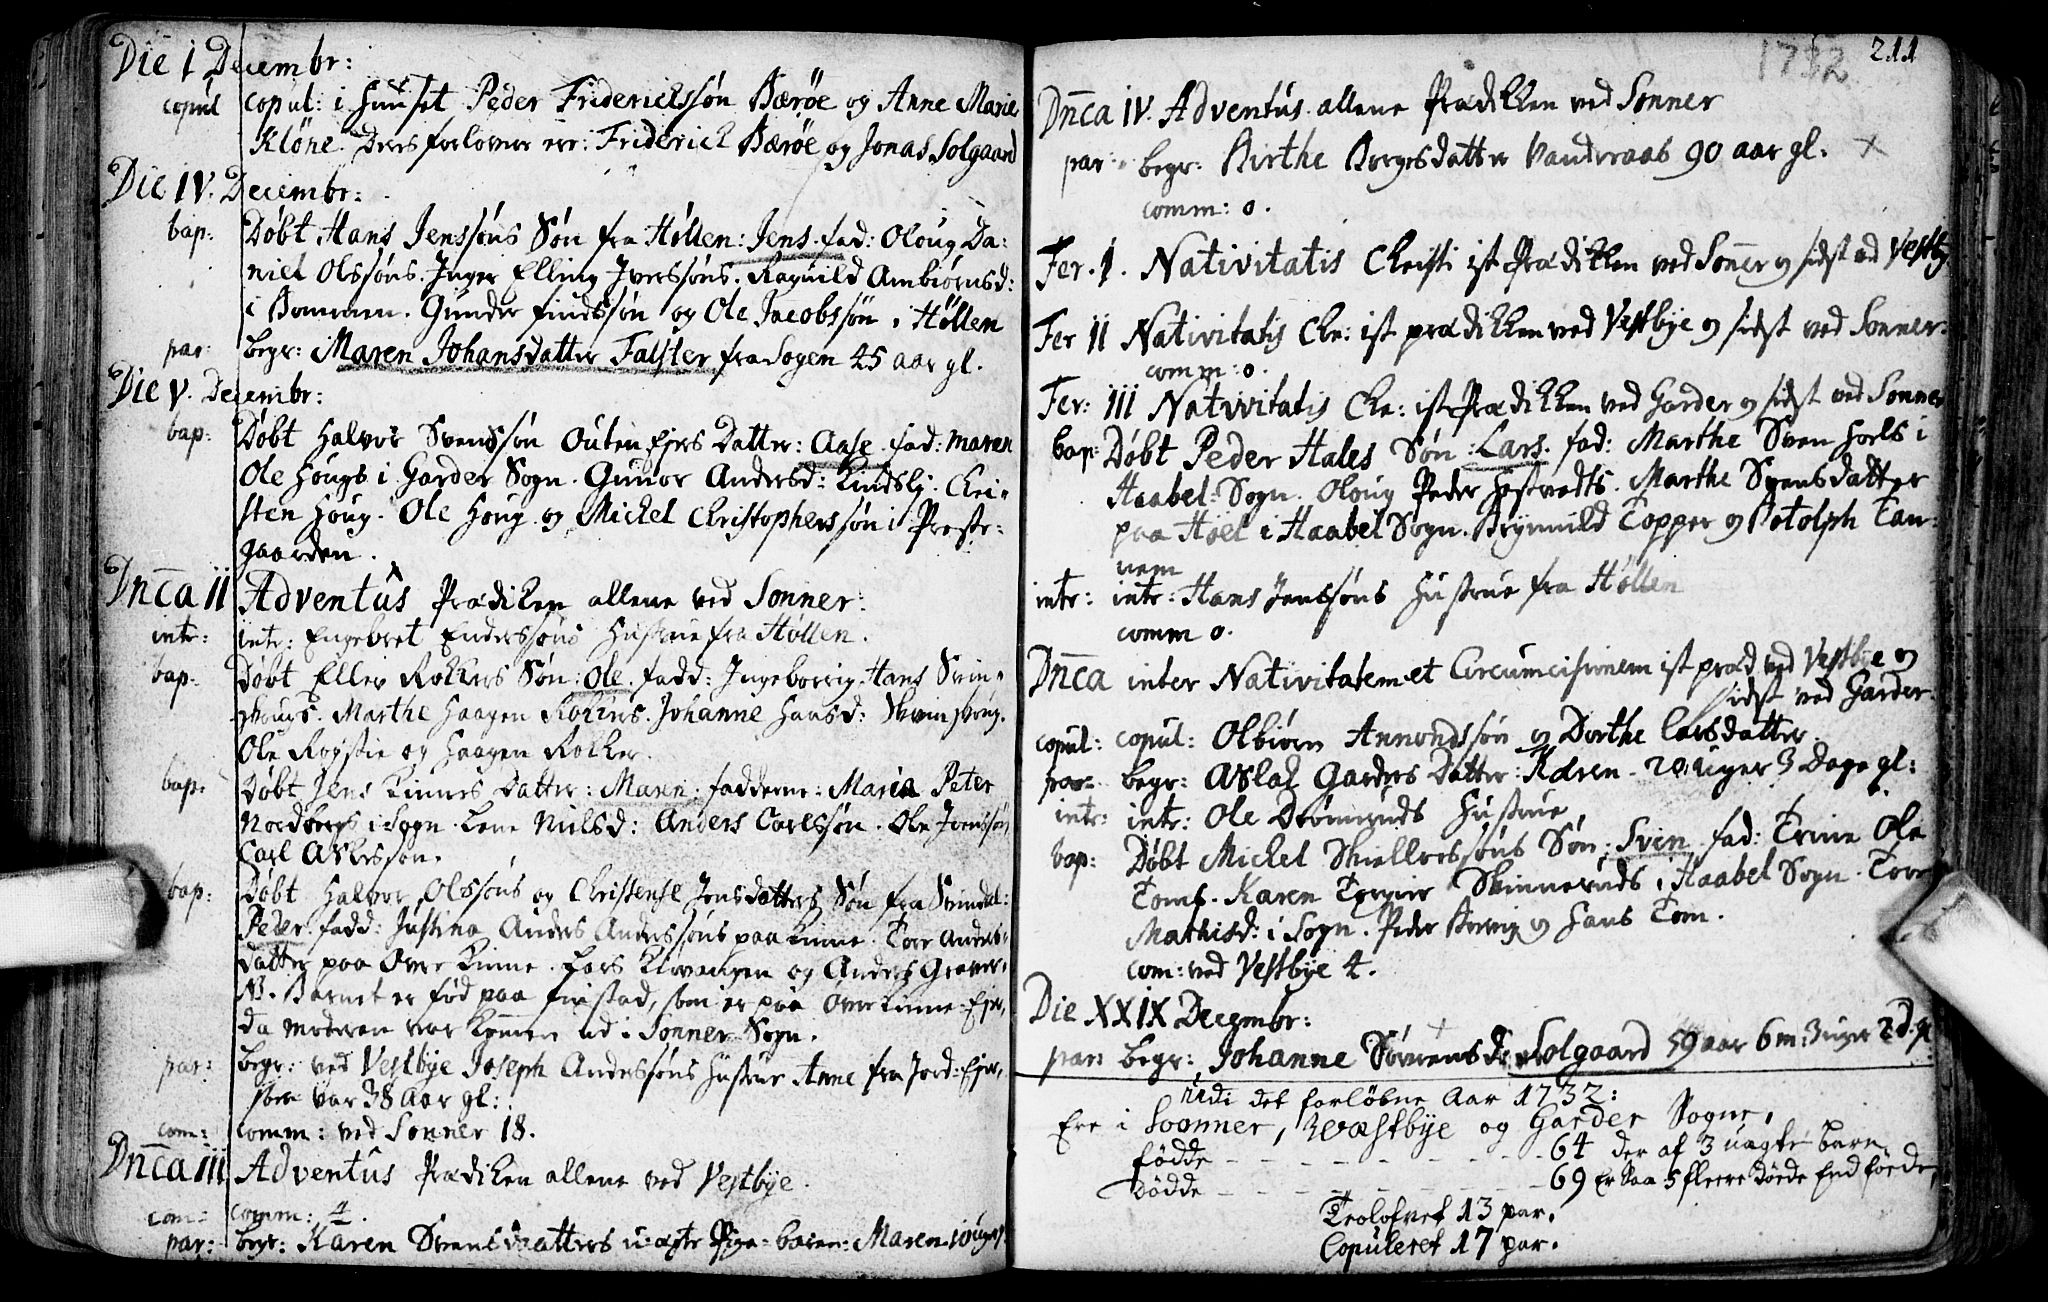 Die I Decembr:
copul copul: i Huuset Peder Friderichssøn Bærøe og Anne Marie
Kløne. Deres forlover ere: Friderich Bærøe og Jonas Solgaard
Die IV. Decembr:
bap: Døbt Hans Jenssøns Søn fra Høllen: Jens. fad: Oloug Da:
niel Olssøns. Inger Elling Iverssøns. Ragnild Ambiørnsd:
i Bommen. Gunder findssøn og Ole Jacobssøn i Høllen
par: begr: Maren Johansdatter Falster fra Sogen 45 aar gl.
Die V. Decembr:
bap: Døbt Halvor Svenssøn Outen Ejers Datter: Aase. fad: Maren
Ole Hougs i Garder Sogn. Gunor Andersd: Kindsli. Chri-
sten Houg. Ole Houg og Michel Christopherssøn i Preste-
gaarden.
Dnca II Adventus Prædiken allene ved Sonner:
intr: intr: Engebret Enderssøns Hustrue fra Høllen.
bap. Døbt Ellev Rolkers Søn: Ole. fadd: Ingeborrig Hans Svin-
skougs. Marthe Haagen Rolkers. Johanne Hansd:
Ole Røystie og Haagen Rolker.
bap. Døbt Jens Kinnes Datter: Maren. fadderne: Maria Peter
Nordbyes i Sogn. Lene Nielsd: Anders Carlssøn. Ole Iverssøn
Carl Aslessøn.
bap: Døbt Halvor Olssøns og Christense Jensdatters Søn fra Svindal:
Peder. fadd: Justina Anders Anderssøns paa Kinne. Tore Anders-
datter paa Over Kinne. Lars Klevengen og Anders Graver.
NB. Barnet er fød paa finstad, som er paa Over Kinne Ejer,
da moderen var kommen ud i Sonner Sogn.
par: begr: ved Vestbye Joseph Anderssøns Hustrue Anne fra Jord: Ejer,
som var 38 Aar gl:
com: comm: ved Sonner 18.
Dnca III Adventus Prædiken allene ved Vestbye.
com: comm: 4.
par: begr: Karen Svensdatters uægte Pige-barn: Maren 10 uger
1732 211
Dnca IV. Adventus allene Prædikken ved Sonner
par: begr: Birthe Borgesdatter Vanderaas 90 aar gl. x
comm: 0.
Fer. I. Nativitatis Christi 1st Prædikken ved Sonner og sidst ved Vestby
Fer II Nativitatis Chr: 1st prædikken ved Vestbye og sidst ved Sonner:
comm: 0.
Fer: III Nativitatis Chr: 1st Prædikken ved Garder og sidst ved Sonner
bap: Døbt Peder Hales Søn: Lars. fad: Marthe Sven Horls i
Haabel: Sogn. Oloug Peder Hestvedts. Marthe Svensdatter
paa Høel i Haabel Sogn. Brynnild Topper og Botolph Tan:
nem
intr: intr: Hans Jenssøns Hustrue fra Høllen
comm 0.
Dnca inter Nativitatem et Circumcisionem 1st præd ved Vestbye og
sidst ved Garder.
copul: copul: Olbiørn Annundssøn og Dorthe Larsdatter.
par. begr: Aslak Garders Datter: Karen. 20 uger 3 Dage gl:
intr: intr: Ole Drømtruds Hustrue,
bap: Døbt Michel Skiellerssøns Søn: Sven. fad: Trine Ole
Toms. Karen Torrier Skinneruds i Haabel Sogn. Tore
Mathisd: i Sogn. Peder Berrig og Hans Tom.
com: ved Vestbye 4.
Die XXIX Decembr:
par: begr: Johanne Sørensd: Solgaard 59 aar 6 m: 3 uger 2 d. gl
Udi det forløbne Aar 1732:
Ere i Soonner, Wæstbye og Garder Sogne,
födde - - - - - - - - - 64 der af 3 uægte børn
Dödde - - - - - - - - - 69 Er Saa 5 fleere Døede End födde,
Trolofvet 13 par.
Copuleret 17 par.